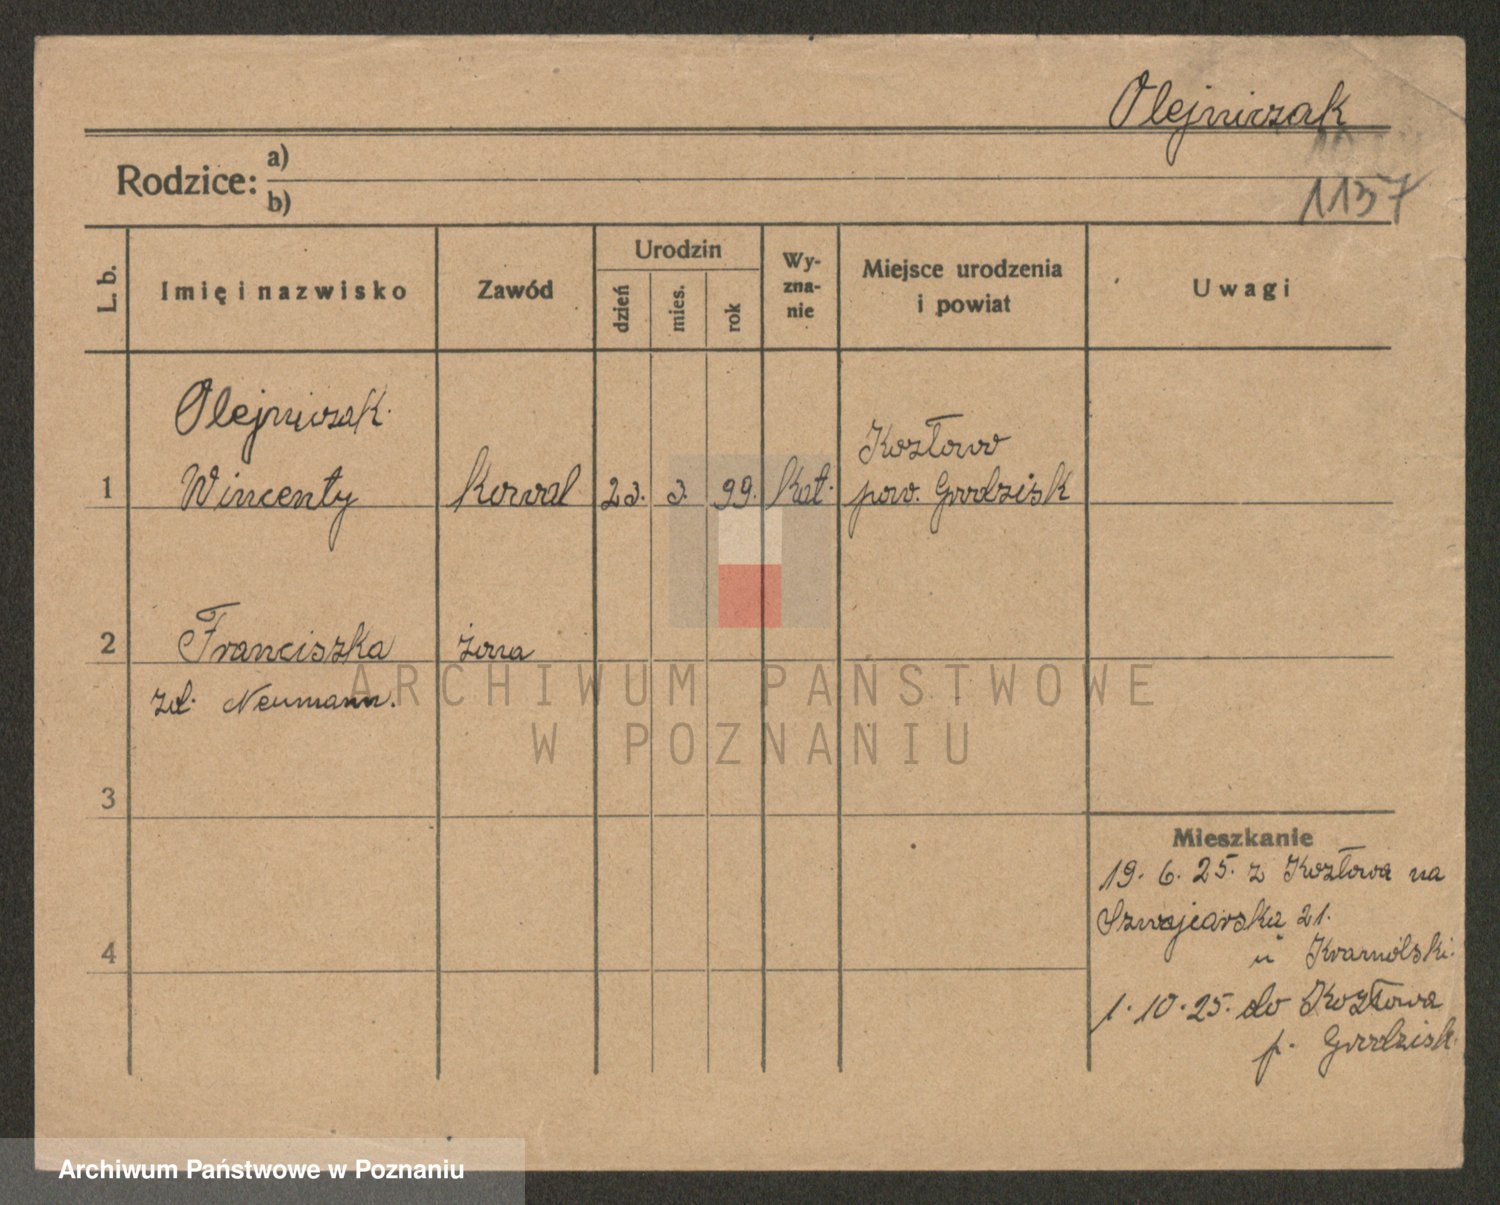 Olejniczak
1137
Rodzice: a)
b)
L. b.
Imię i nazwisko
Zawód
Urodzin
dzień
mies.
rok
Wy-
zna-
nie
Miejsce urodzenia
i powiat
Uwagi
Olejniczak
1 Wincenty
kowal
23. 3. 99.
kat.
Kozłowo
pow. Grodzisk
2 Franciszka
żona
zd. Neumann.
3
4
Mieszkanie
19. 6. 25. z Kozłowa na
Szwajcarska 21.
u
1. 10. 25. do Kozłowa
p. Grodzisk.
ARCHIWUM PAŃSTWOWE
W POZNANIU
Archiwum Państwowe w Poznaniu